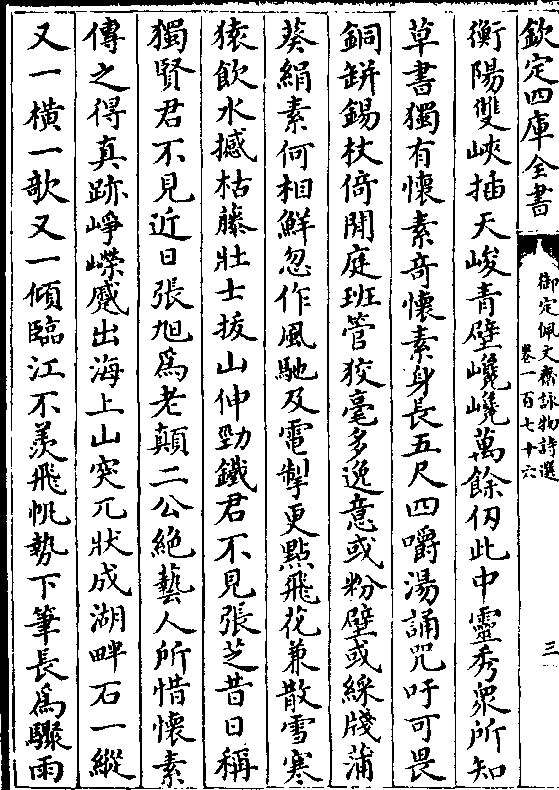 欽定四庫全書
御定佩文齋詠物詩選
卷一百七十六
三
衡陽雙峽插天峻青壁巉巉萬餘仭此中靈秀衆所知
草書獨有懷素奇懷素身長五尺四嚼湯誦咒吁可畏
銅缾錫杖倚閒庭班管狡毫多逸意或粉壁或綵牋蒲
葵絹素何相鮮忽作風馳及電掣更點飛花兼散雪寒
猿飲水撼枯藤壯士拔山伸勁鐵君不見張芝昔日稱
獨賢君不見近日張旭爲老顛二公絶藝人所惜懷素
傳之得真跡崢嶸蹙出海上山突兀狀成湖畔石一縱
又一橫一欹又一傾臨江不羨飛帆勢下筆長爲驟雨